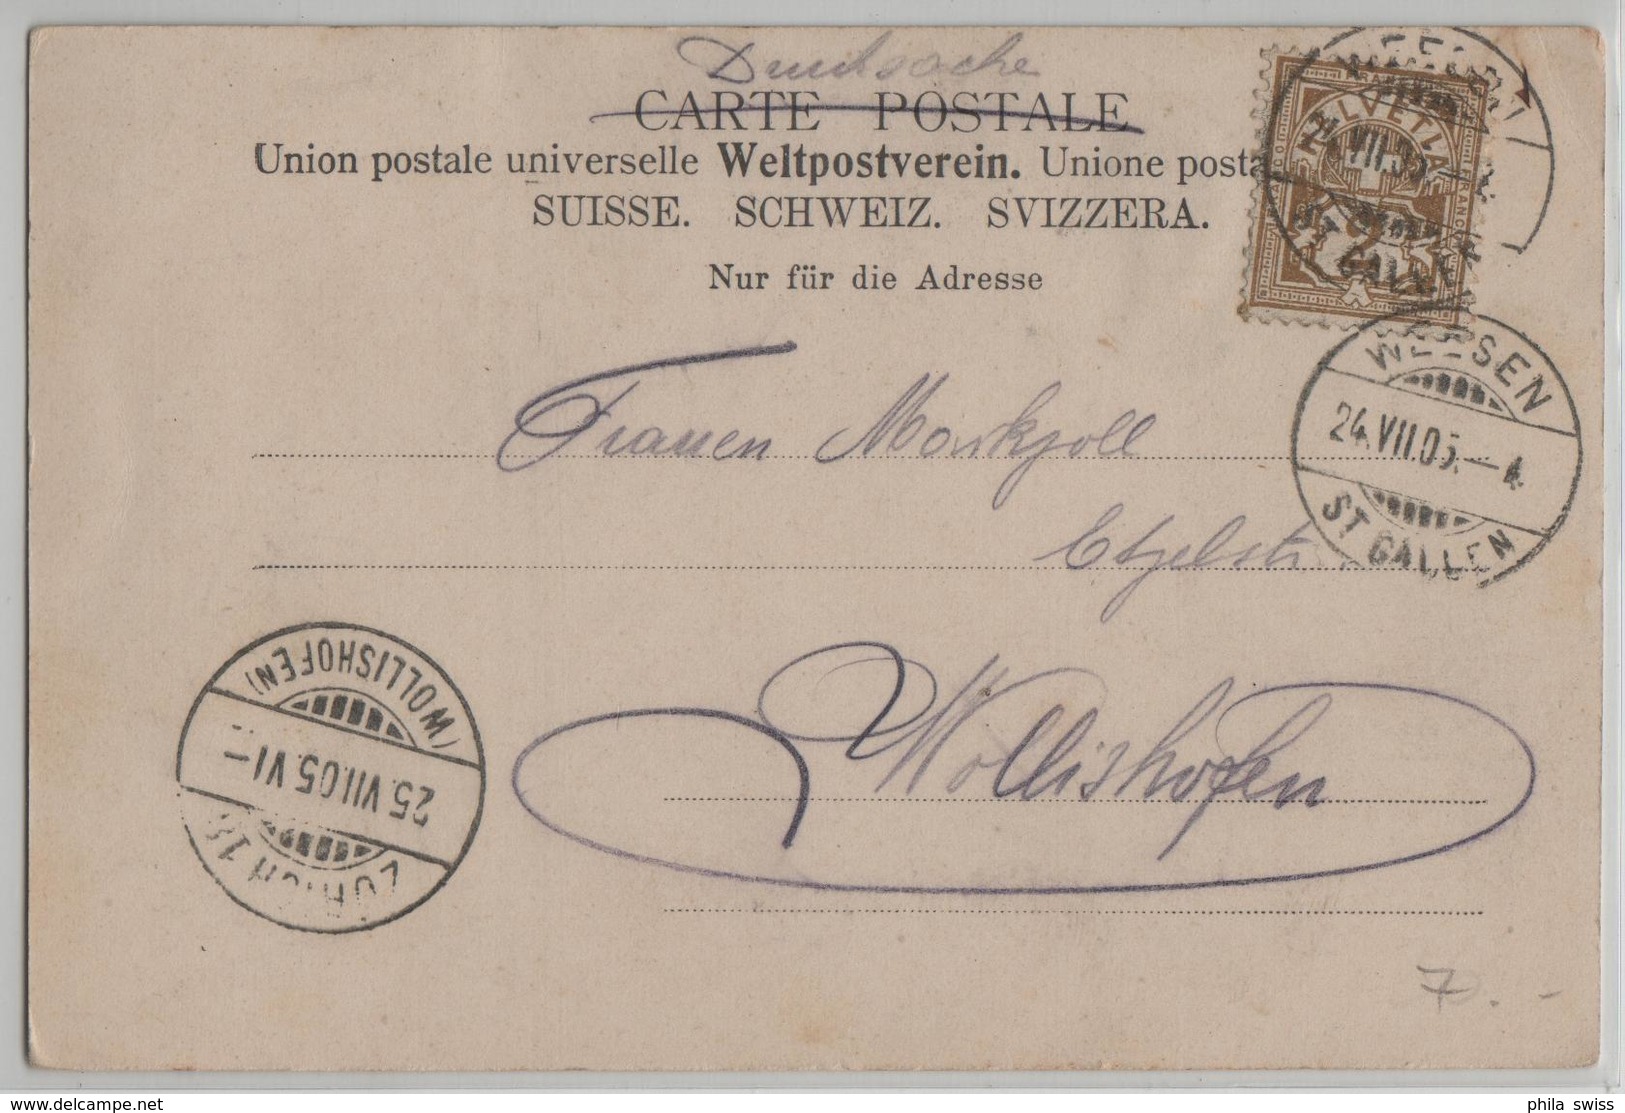 Drucksache
CARTE POSTALE
Union postale universelle Weltpostverein. Unione posta
SUISSE. SCHWEIZ. SVIZZERA.
Nur für die Adresse
HELVETIA
FRANCO
2
GALLEN
WEESEN
24.VII.05.–4
ST GALLEN
Frauen Markzoll
Etzelstr
Wollishofen
(WOLLISHOFEN)
25.VII.05.VI–
ZÜRICH
70.-
phila swiss